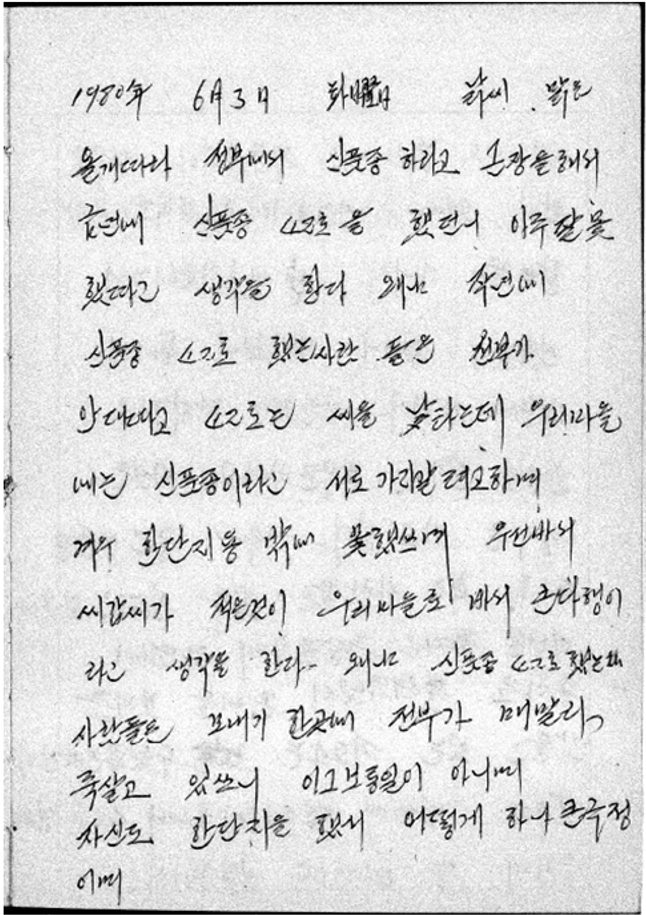 1980年 6月 3日 화曜日 날씨 맑은
올개따라 정부에서 신품종 하라고 는장을해서
금년에 신품종 42호을 했던니 아주잘못
했따고 생각을 한다 왜냐 작년에
신품종 42호 했는사람 들은 전부가
안대따고 42호는 씨을 낮타는데 우리마을
에는 신품종이라고 서로 가라갈려고하며
겨우 한단지용 밖에 못했쓰며 우선바서
씨갑씨가 적은것이 우리마을로 바서 큰다행이
라고 생각을 한다. 왜냐 신품종 42호 했는
사람들은 모내기 한곳에 전부가 매말라
죽살고 있쓰니 이그보통일이 아니며
자신도 한단지을 했서 어떻게 하나 큰극정
이며